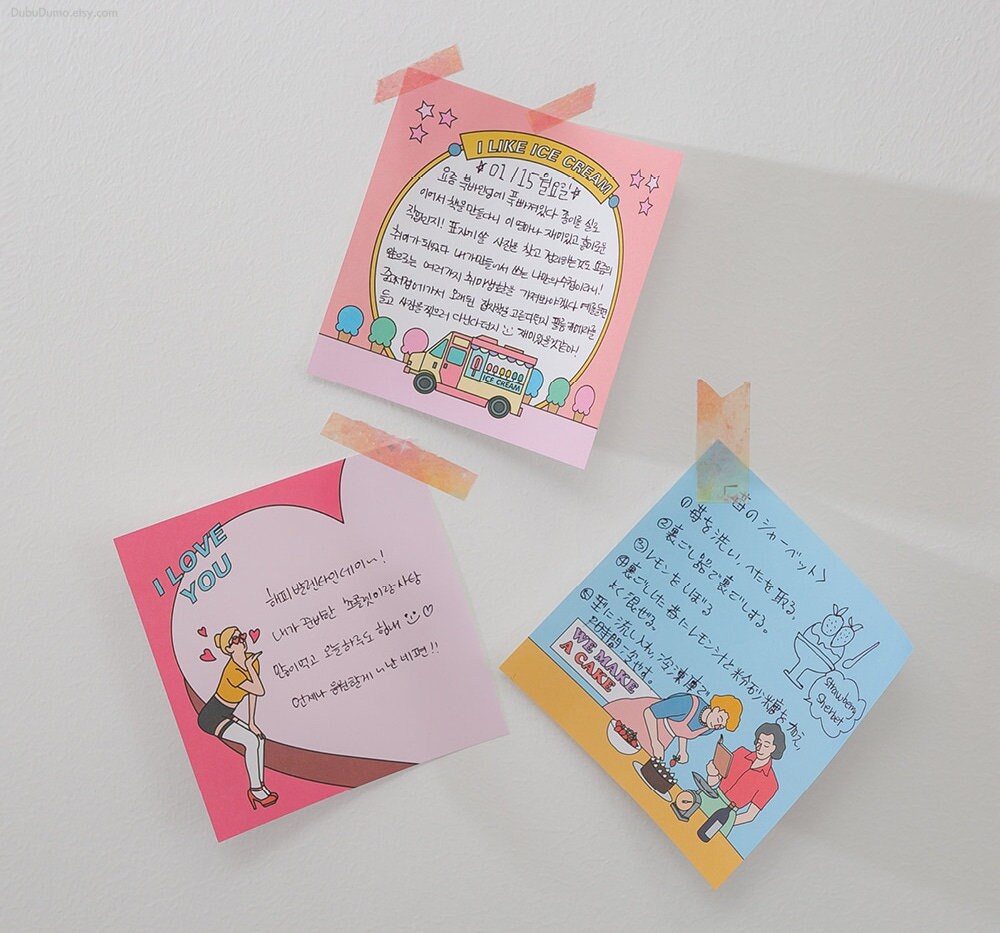 DubuDumo.etsy.com
I LIKE ICE CREAM
01/15 월요일
요즘 북바인딩에 푹 빠져있다 종이를 실로
이어서 책을 만들다니 이 얼마나 재미있고 흥미로운
작업인지! 표지에 쓸 사진을 찾고 정리하는것도 요즘의
취미가 되었다 내가 만들어서 쓰는 나만의 수첩이라니!
앞으로는 여러가지 취미생활을 가져봐야겠다 예를들면
중고서점에 가서 오래된 잡지책을 고른다던지 필름 카메라를
들고 사진을 찍으러 다닌다던지 재미있을것같아!
ICE CREAM
I LOVE
YOU
해피 발렌타인데이~!
내가 준비한 초콜릿이랑 사탕
많이 먹고 오늘하루도 힘내
언제나 응원할게 난 네 편!!
苺のシャーベット〉
①苺を洗い、へたを取る。
②裏ごし器で裏ごしする。
③レモンをしぼる
④裏ごしした苺にレモン汁と粉砂糖を加え、
よく混ぜる。
⑤型に流し入れ、冷凍庫で
Strawberry
Sherbet
WE MAKE
A CAKE